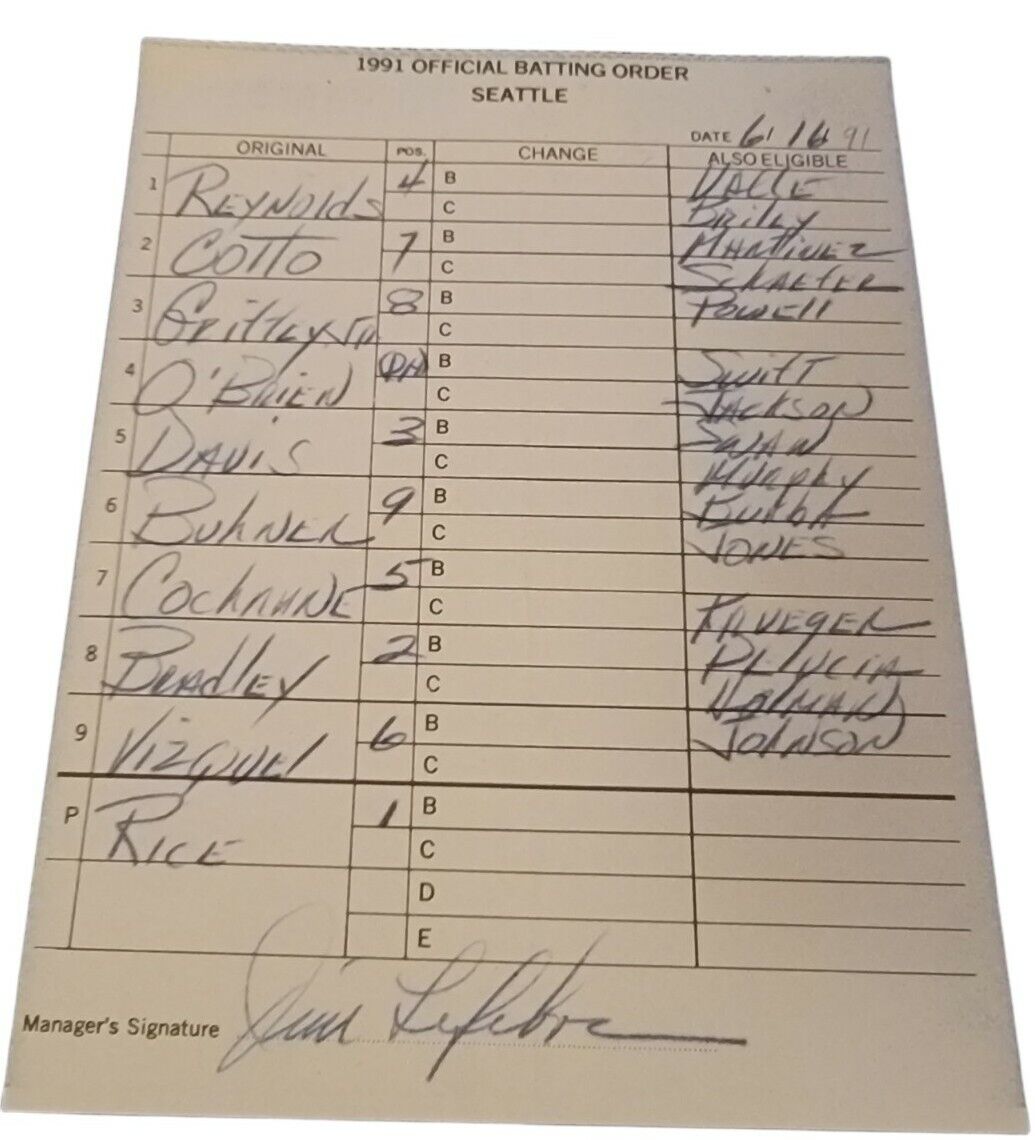 1991 OFFICIAL BATTING ORDER
SEATTLE
DATE 6/16 91
ORIGINAL POS. CHANGE ALSO ELIGIBLE
1 REYNOLdS 4 B VALLE
C BRILEY
2 COTTO 7 B MARTINEZ
C SCHAEFER
3 GRIFFEY JR 8 B POWELL
C
4 O'BRIEN DH B SWIFT
C JACKSON
5 DAVIS 3 B SWAN
C MURPHY
6 BUHNER 9 B BURBA
C JONES
7 COCHRANE 5 B
C KRUEGER
8 BRADLEY 2 B DELUCIA
C HOLMAN
9 VIZQUEL 6 B JOHNSON
C
P RICE 1 B
C
D
E
Manager's Signature Jim Lefebvre